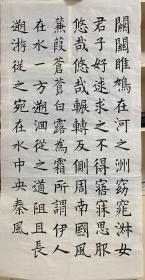 關關雎鳩在河之洲窈窕淑女
君子好逑求之不得寤寐思服
悠哉悠哉輾轉反側周南國風
蒹葭蒼蒼白露為霜所謂伊人
在水一方溯洄從之道阻且長
溯游從之宛在水中央秦風